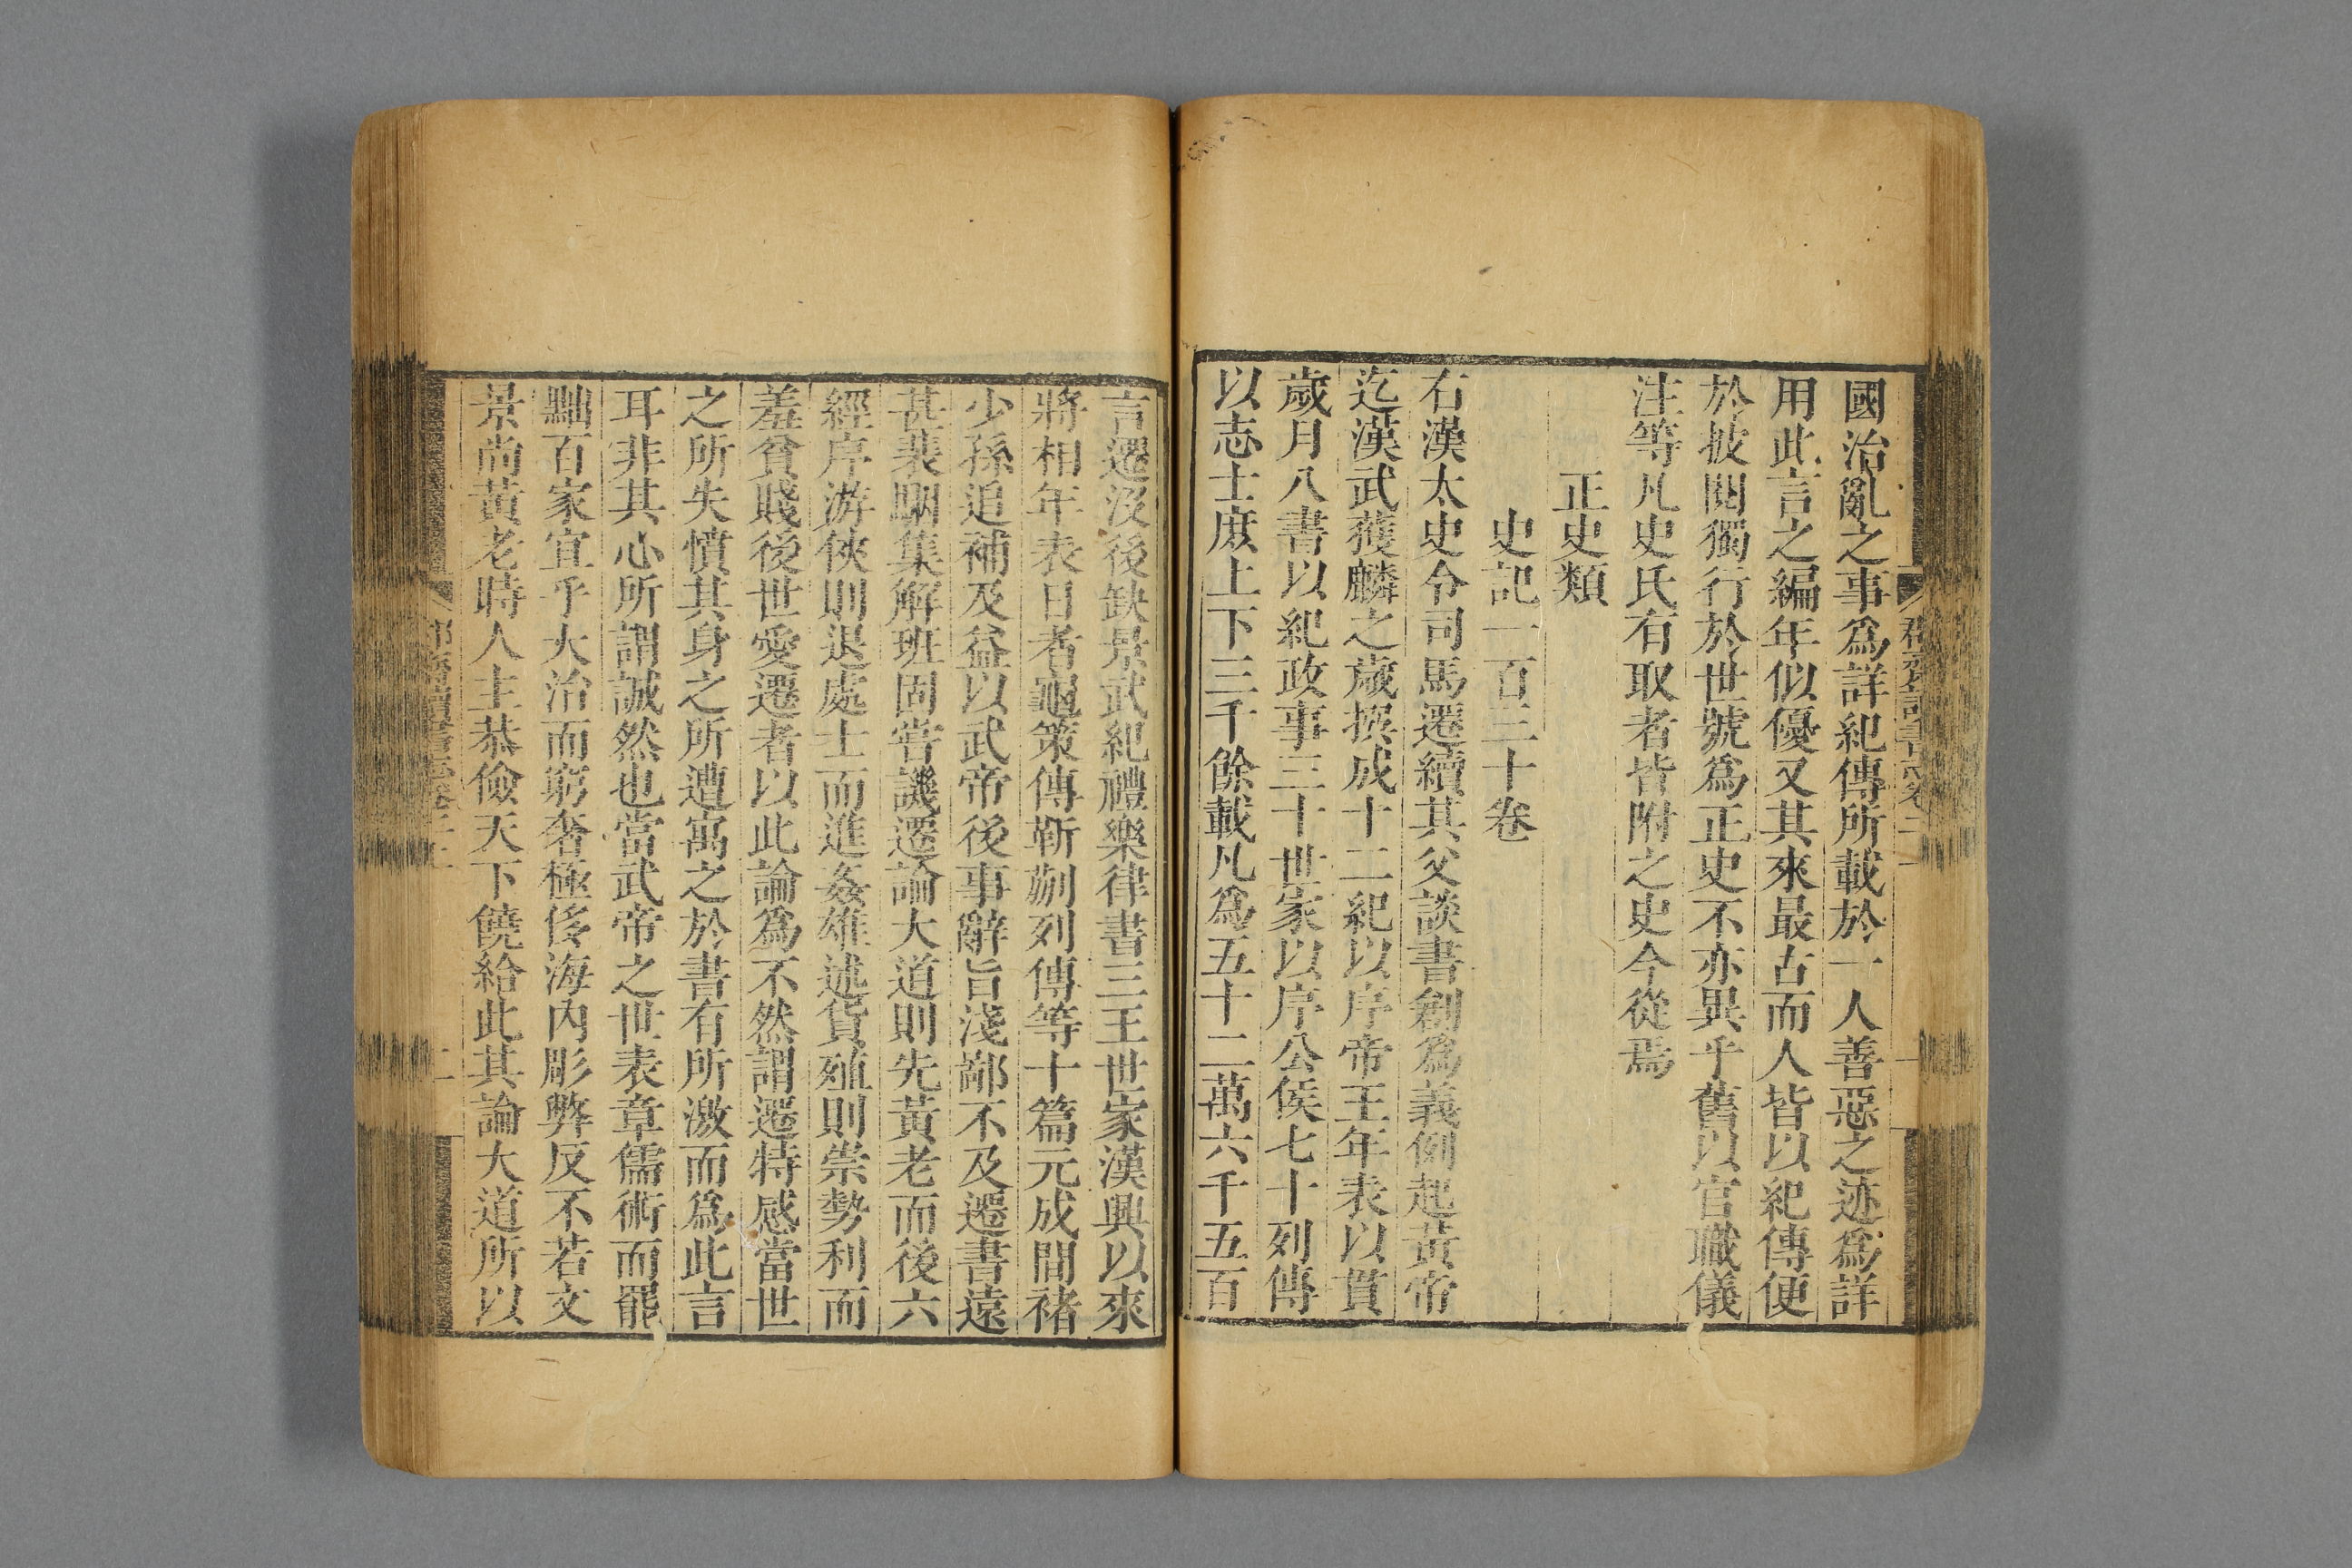 國治亂之事爲詳紀傳所載於一人善惡之迹爲詳
用此言之編年似優又其來最古而人皆以紀傳便
於披閱獨行於世號爲正史不亦異乎舊以官職儀
注等凡史氏有取者皆附之史今從焉
正史類
史記一百三十卷
右漢太史令司馬遷續其父談書創爲義例起黃帝
迄漢武獲麟之歲撰成十二紀以序帝王年表以貫
歲月八書以紀政事三十世家以序公侯七十列傳
以志士庶上下三千餘載凡爲五十二萬六千五百
言遷沒後缺景武紀禮樂律書三王世家漢興以來
將相年表日者龜策傳靳蒯列傳等十篇元成間褚
少孫追補及益以武帝後事辭旨淺鄙不及遷書遠
甚裴駰集解班固嘗譏遷論大道則先黃老而後六
經序游俠則退處士而進姦雄述貨殖則崇勢利而
羞貧賤後世愛遷者以此論爲不然謂遷特感當世
之所失憤其身之所遭寓之於書有所激而爲此言
耳非其心所謂誠然也當武帝之世表章儒術而罷
黜百家宜乎大治而窮奢極侈海內彫弊反不若文
景尚黃老時人主恭儉天下饒給此其論大道所以